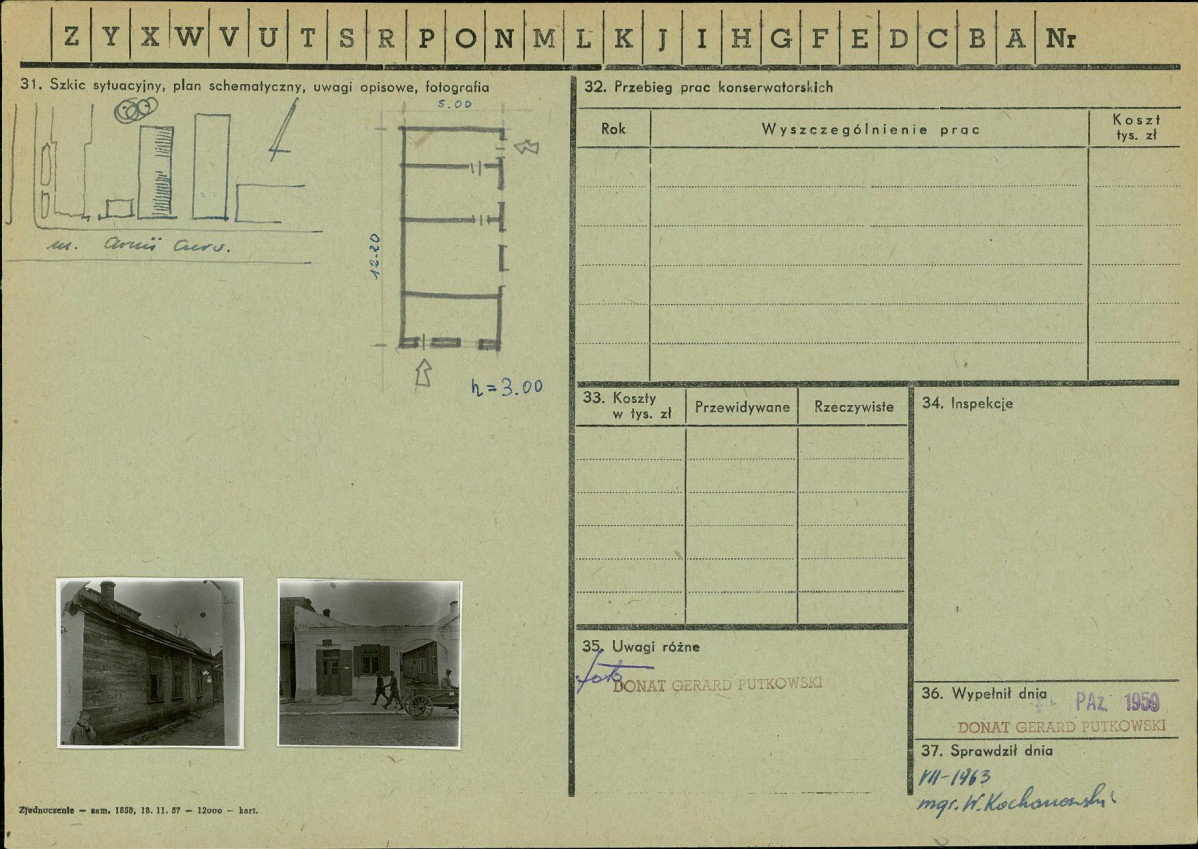 Z Y X W V U T S R P O N M L K J I H G F E D C B A Nr
31. Szkic sytuacyjny, plan schematyczny, uwagi opisowe, fotografia
5.00
12.20
h = 3.00
ul. Armii Czerw.
32. Przebieg prac konserwatorskich
Rok
Wyszczególnienie prac
Koszt
tys. zł
33. Koszty
w tys. zł
Przewidywane
Rzeczywiste
34. Inspekcje
35. Uwagi różne
foto
DONAT GERARD PUTKOWSKI
36. Wypełnił dnia
PAŹ. 1959
DONAT GERARD PUTKOWSKI
37. Sprawdził dnia
VII-1963
mgr. W. Kochanowski
Zjednoczenie — zam. 1858, 18. 11. 57 — 12000 — kart.